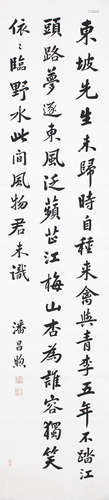 東坡先生未歸時自種來禽與青李五年不踏江
頭路夢逐東風泛蘋芷江梅山杏為誰容獨笑
依依臨野水此間風物君未識
潘昌煦